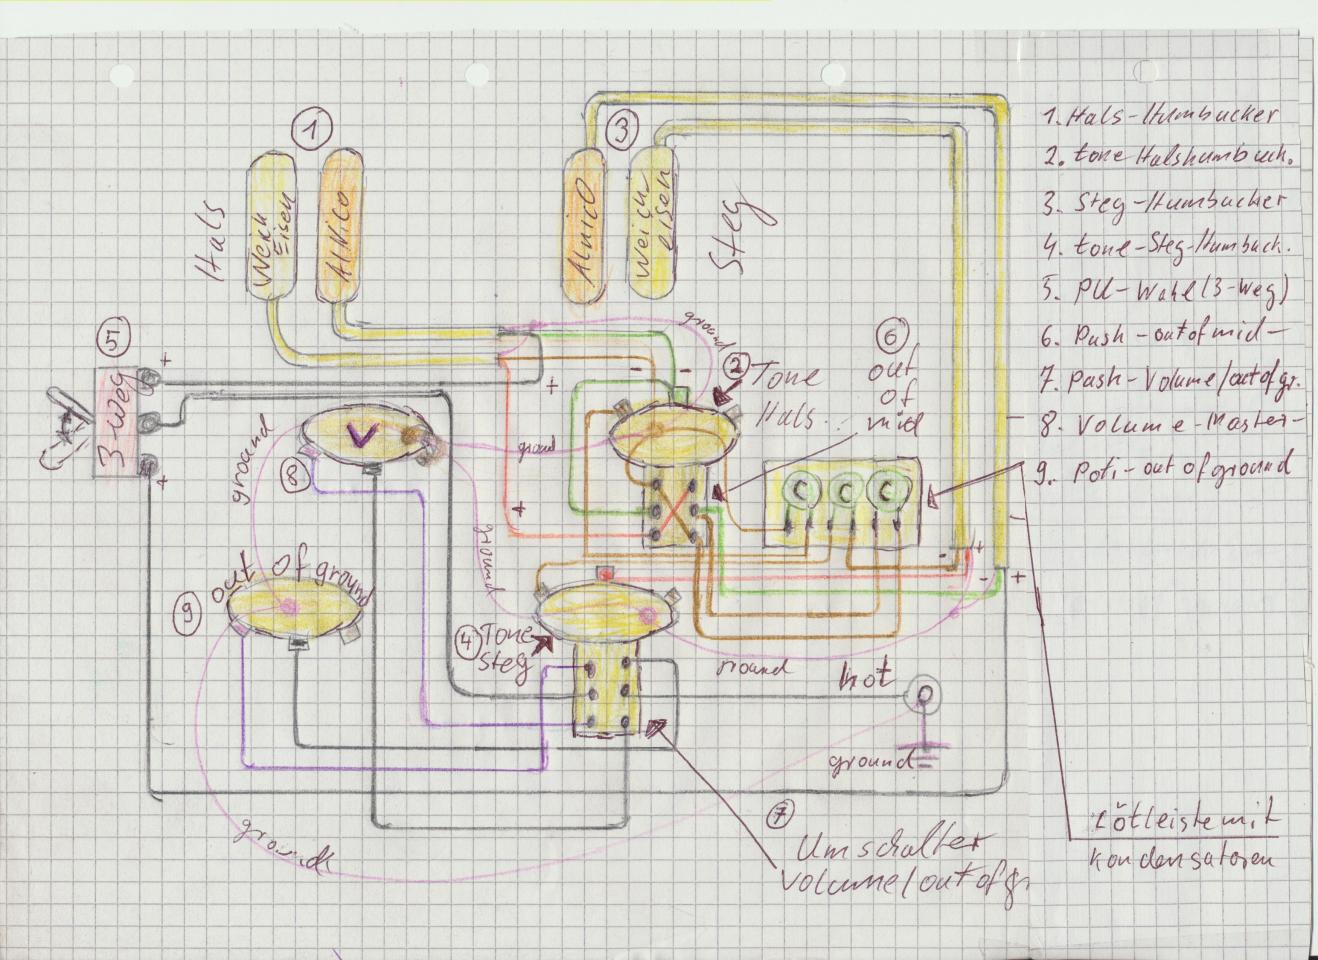 1
3
1. Hals-Humbucker
2. tone Halshumbuck.
3. Steg-Humbucker
4. tone-Steg-Humbuck.
5. PU-Wahl (3-Weg)
6. Push-out of mid-
7. Push-Volume/out of gr.
8. Volume-Master-
9. Poti-out of ground
Hals
Weich
Eisen
AlNiCo
AlNiCO
Weich
eisen
Steg
5
+
3 weg
+
ground
-
-
+
2
Tone
Hals..
6
out
of
mid
V
8
ground
ground
+
C
C
C
ground
-
+
-
+
9
out of ground
4
Tone
Steg
ground
hot
ground
ground
7
Umschalter
Volume/out of gr
Lötleiste mit
Kondensatoren